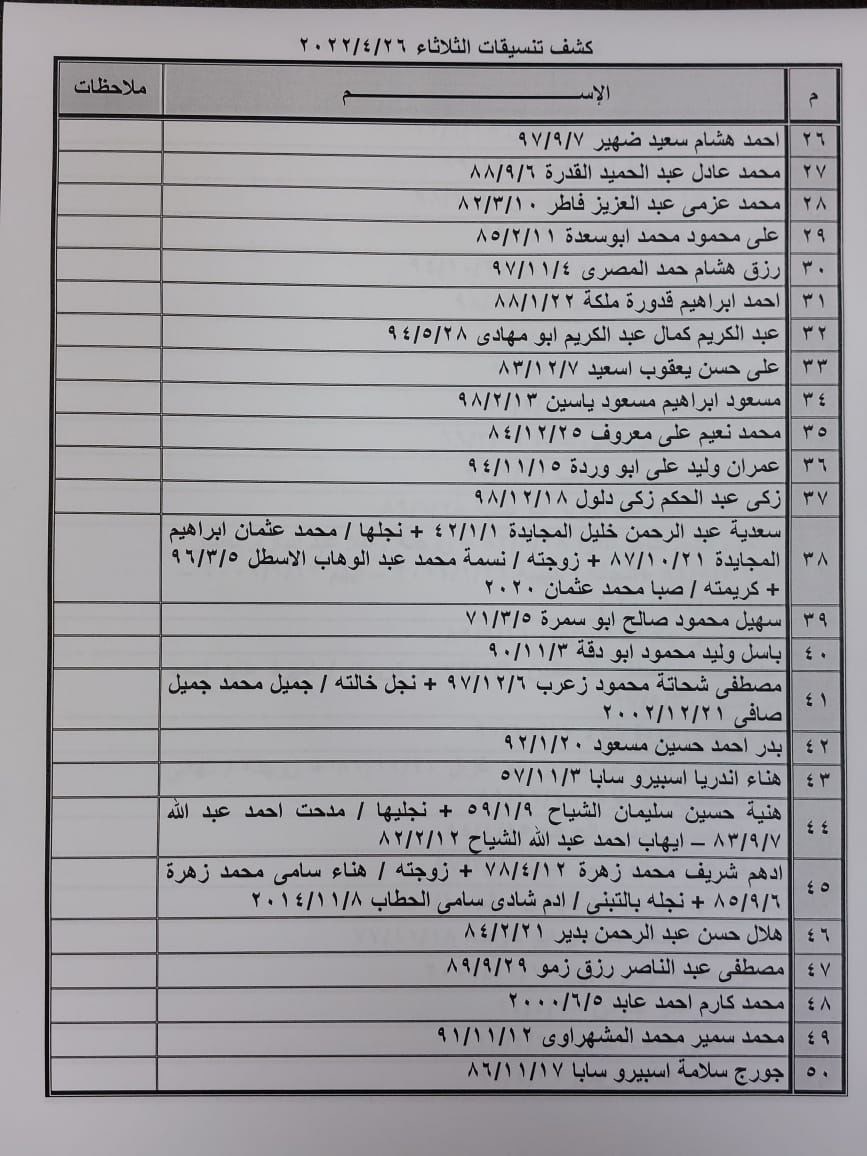 كشف تنسيقات الثلاثاء ٢٠٢٢/٤/٢٦
م الإســـــــــم ملاحظات
٢٦ احمد هشام سعيد ضهير ٩٧/٩/٧
٢٧ محمد عادل عبد الحميد القدرة ٨٨/٩/٦
٢٨ محمد عزمى عبد العزيز فاطر ٨٢/٣/١٠
٢٩ على محمود محمد ابوسعدة ٨٥/٢/١١
٣٠ رزق هشام حمد المصرى ٩٧/١١/٤
٣١ احمد ابراهيم قدورة ملكة ٨٨/١/٢٢
٣٢ عبد الكريم كمال عبد الكريم ابو مهادى ٩٤/٥/٢٨
٣٣ على حسن يعقوب اسعيد ٨٣/١٢/٧
٣٤ مسعود ابراهيم مسعود ياسين ٩٨/٢/١٣
٣٥ محمد نعيم على معروف ٨٤/١٢/٢٥
٣٦ عمران وليد على ابو وردة ٩٤/١١/١٥
٣٧ زكى عبد الحكم زكى دلول ٩٨/١٢/١٨
سعدية عبد الرحمن خليل المجايدة ٤٢/١/١ + نجلها / محمد عثمان ابراهيم
٣٨ المجايدة ٨٧/١٠/٢١ + زوجته / نسمة محمد عبد الوهاب الاسطل ٩٦/٣/٥
+ كريمته / صبا محمد عثمان ٢٠٢٠
٣٩ سهيل محمود صالح ابو سمرة ٧١/٣/٥
٤٠ باسل وليد محمود ابو دقة ٩٠/١١/٣
٤١ مصطفى شحاتة محمود زعرب ٩٧/١٢/٦ + نجل خالته / جميل محمد جميل
صافى ٢٠٠٢/١٢/٢١
٤٢ بدر احمد حسين مسعود ٩٢/١/٢٠
٤٣ هناء اندريا اسبيرو سابا ٥٧/١١/٣
٤٤ هنية حسين سليمان الشياح ٥٩/١/٩ + نجليها / مدحت احمد عبد الله
٨٣/٩/٧ – ايهاب احمد عبد الله الشياح ٨٢/٢/١٢
٤٥ ادهم شريف محمد زهرة ٧٨/٤/١٢ + زوجته / هناء سامى محمد زهرة
٨٥/٩/٦ + نجله بالتبنى / ادم شادى سامى الحطاب ٢٠١٤/١١/٨
٤٦ هلال حسن عبد الرحمن بدير ٨٤/٢/٢١
٤٧ مصطفى عبد الناصر رزق زمو ٨٩/٩/٢٩
٤٨ محمد كارم احمد عابد ٢٠٠٠/٦/٥
٤٩ محمد سمير محمد المشهراوى ٩١/١١/١٢
٥٠ جورج سلامة اسبيرو سابا ٨٦/١١/١٧